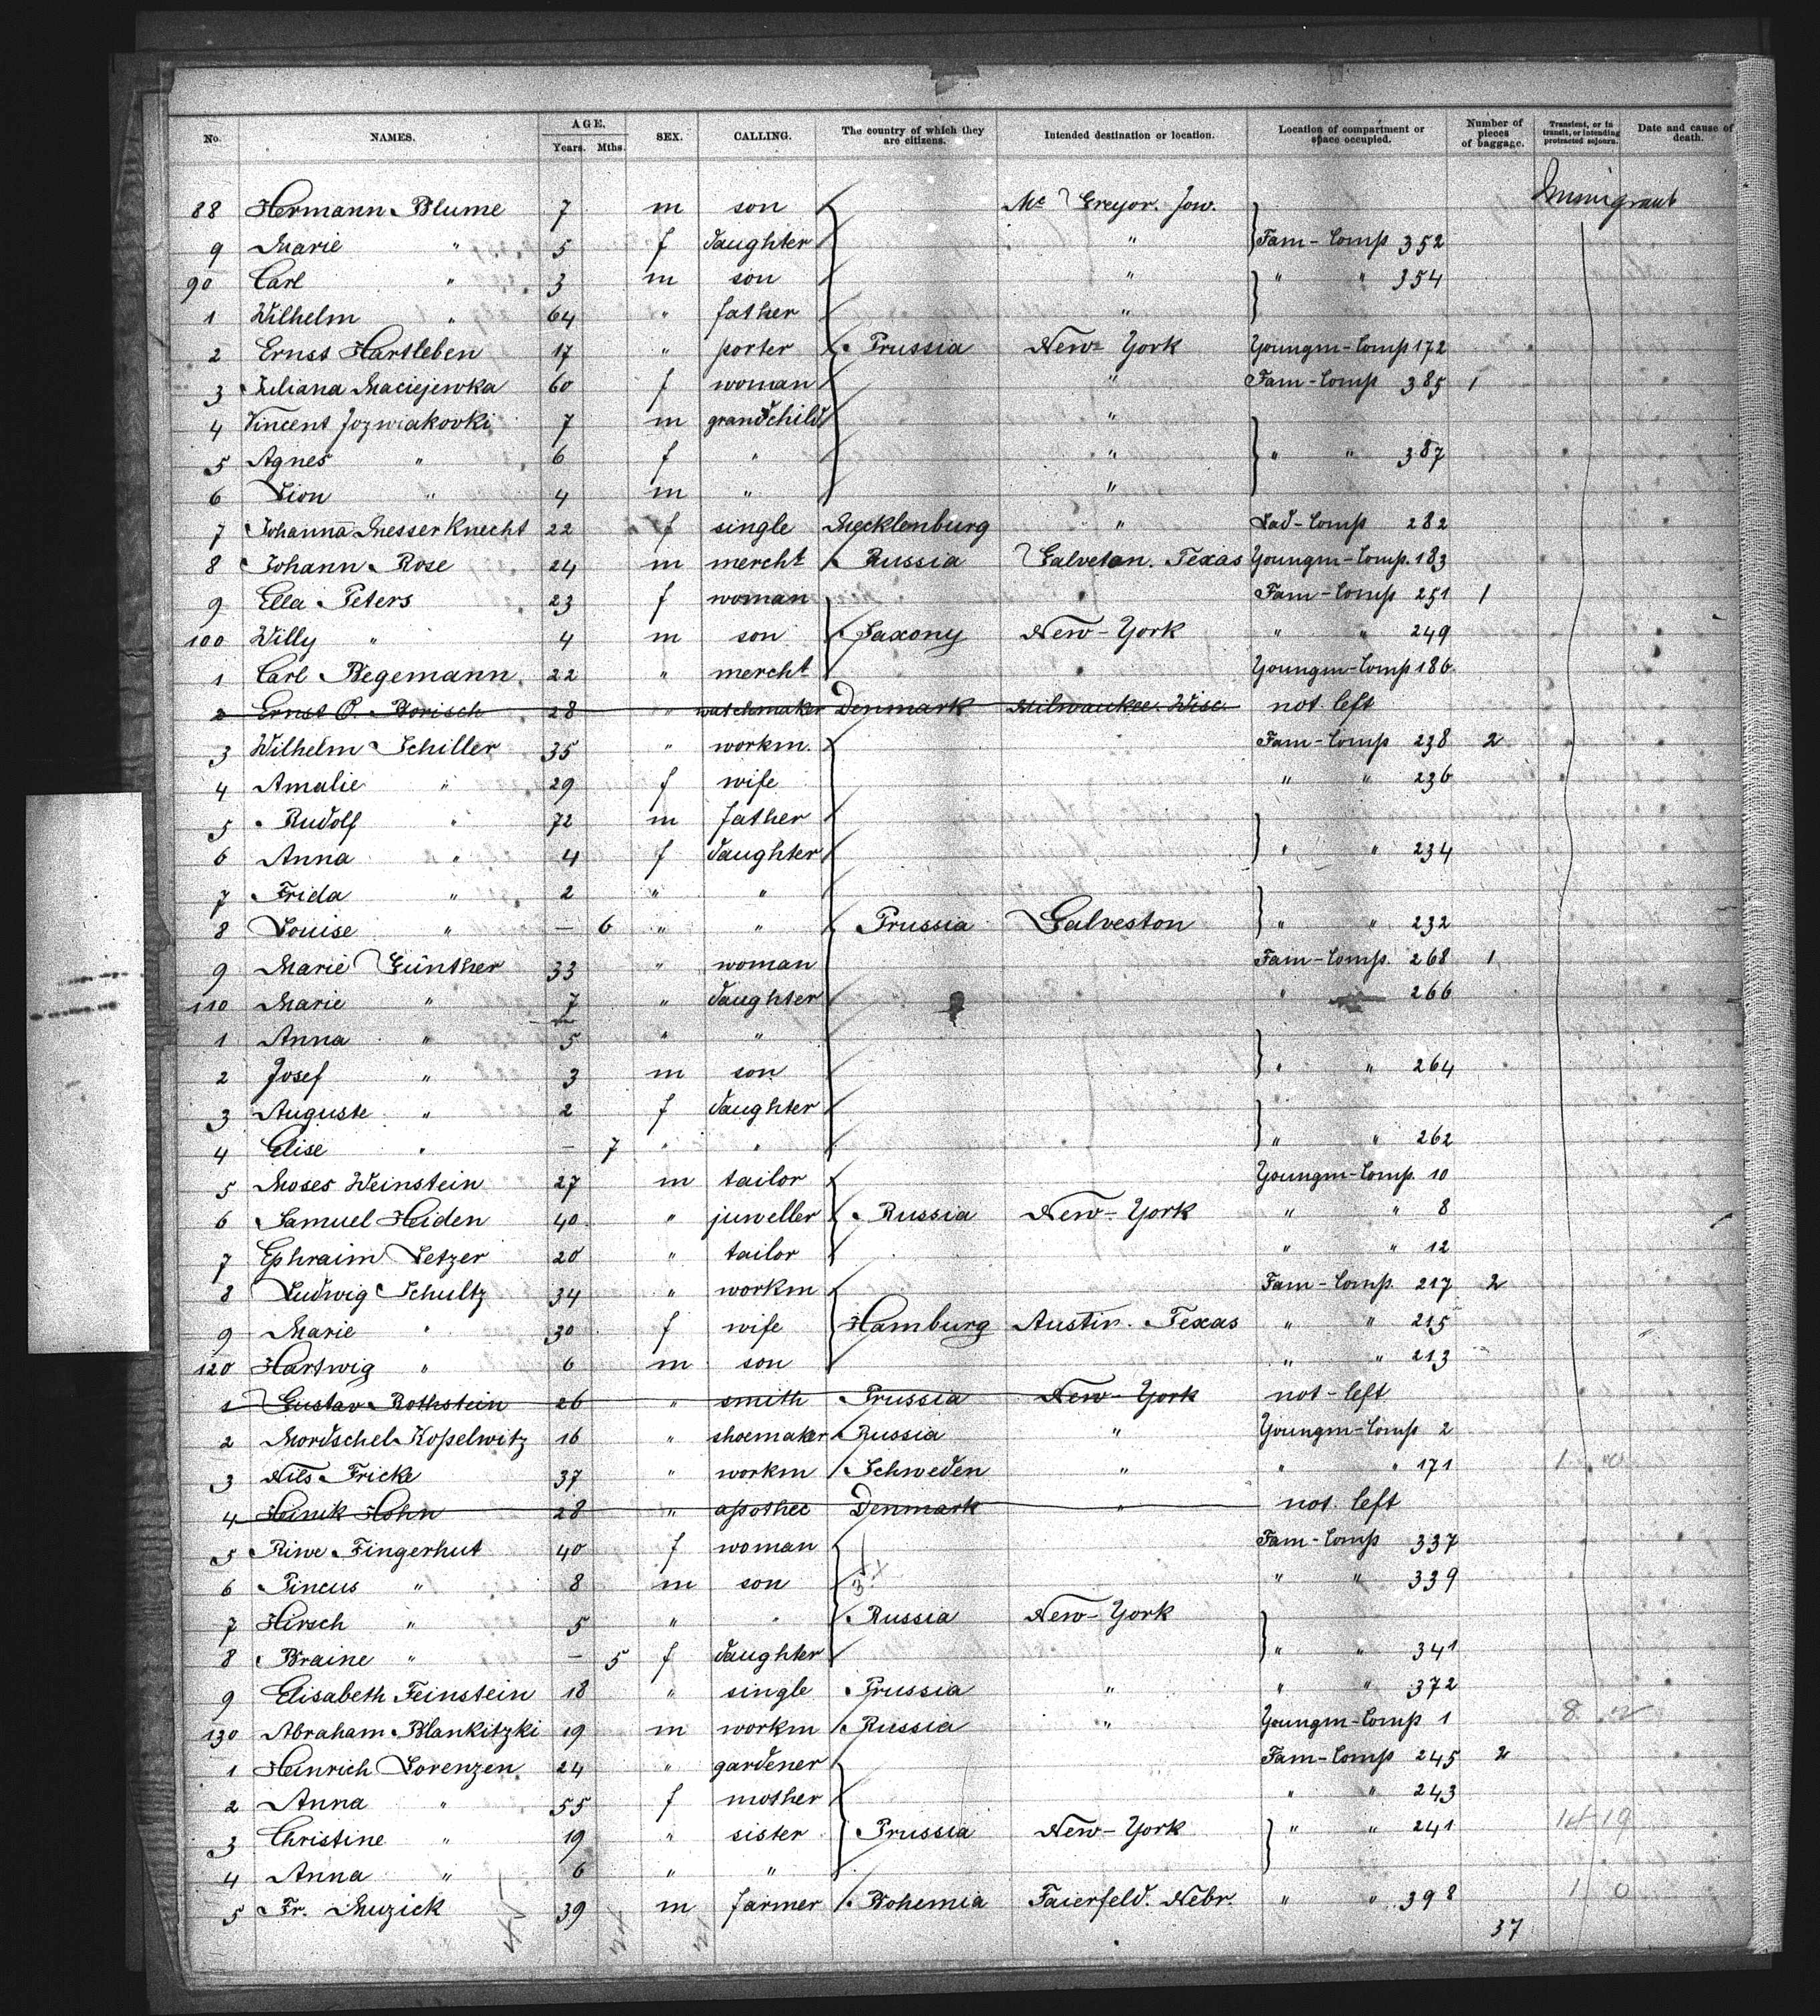 No. NAMES. AGE. Years. Mths. SEX. CALLING. The country of which they are citizens. Intended destination or location. Location of compartment or space occupied. Number of pieces of baggage. Transient, or in transit, or intending protracted sojourn. Date and cause of death.
88 Hermann Blume 7 m son Mc Greyor. Jow. Immigrant
9 Marie " 5 f daughter " Fam-Comp 352
90 Carl " 3 m son " " " 354
1 Wilhelm " 64 " father "
2 Ernst Hartleben 17 " porter Prussia New York Youngm-Comp 172
3 Juliana Maciejewka 60 f woman " Fam-Comp 385 1
4 Vincent Jozwiakovki 7 m grandchild "
5 Agnes " 6 f " " " " 387
6 Lion " 4 m " "
7 Johanna Messerknecht 22 f single Mecklenburg " Lad-Comp 282
8 Johann Rose 24 m mercht Russia Galveton. Texas Youngm-Comp. 183
9 Ella Peters 23 f woman Fam-Comp 251 1
100 Willy " 4 m son Saxony New-York " " 249
1 Carl Begemann 22 " mercht Youngm-Comp 186
2 Ernst P. Borisch 28 " watchmaker Denmark Milwaukee. Wisc. not left
3 Wilhelm Schiller 35 " workm. Fam-Comp 238 2
4 Amalie " 29 f wife " " 236
5 Rudolf " 72 m father
6 Anna " 4 f daughter " " 234
7 Frida " 2 " "
8 Louise " — 6 " " Prussia Galveston " " 232
9 Marie Günther 33 " woman Fam-Comp. 268 1
110 Marie " 7 " daughter " 266
1 Anna " 5 " "
2 Josef " 3 m son " " 264
3 Auguste " 2 f daughter
4 Elise " — 7 " " " " 262
5 Moses Weinstein 27 m tailor Youngm-Comp. 10
6 Samuel Heiden 40 " juweller Russia New-York " " 8
7 Ephraim Letzer 20 " tailor " " 12
8 Ludwig Schultz 34 " workm Fam-Comp. 217 2
9 Marie " 30 f wife Hamburg Austin. Texas " " 215
120 Hartwig " 6 m son " " 213
1 Gustav Rothstein 26 " smith Prussia New-York not-left
2 Mordschel Kopelwitz 16 " shoemaker Russia " Youngm-Comp 2
3 Nils Fricke 37 " workm Schweden " " " 171
4 Heinik Hohn 28 " apothec Denmark " not left
5 Riwe Fingerhut 40 f woman Fam-Comp 337
6 Pincus " 8 m son " " 339
7 Hirsch " 5 " " Russia New-York
8 Braine " — 5 f daughter " " 341
9 Elisabeth Feinstein 18 " single Prussia " " " 372
130 Abraham Blankitzki 19 m workm Russia " Youngm-Comp 1
1 Heinrich Lorenzen 24 " gardener Fam-Comp 245 2
2 Anna " 55 f mother " " 243
3 Christine " 19 " sister Prussia New-York " " 241
4 Anna " 6 " "
5 Fr. Muzick 39 m farmer Bohemia Faierfeld. Nebr. " " 398
37